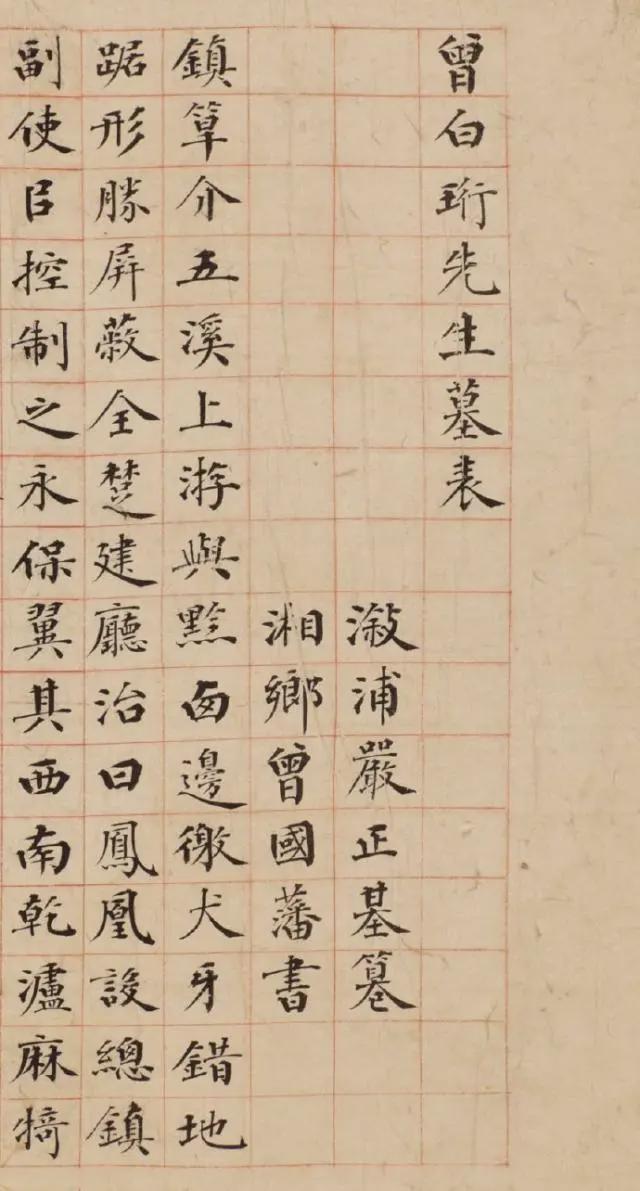 曾白珩先生墓表
溆浦嚴正基篹
湘鄉曾國藩書
鎮筸介五溪上游與黔邊徼犬牙錯地
踞形勝屏蔽全楚建廳治曰鳳凰設總鎮
副使㠯控制之永保翼其西南乾瀘麻犄